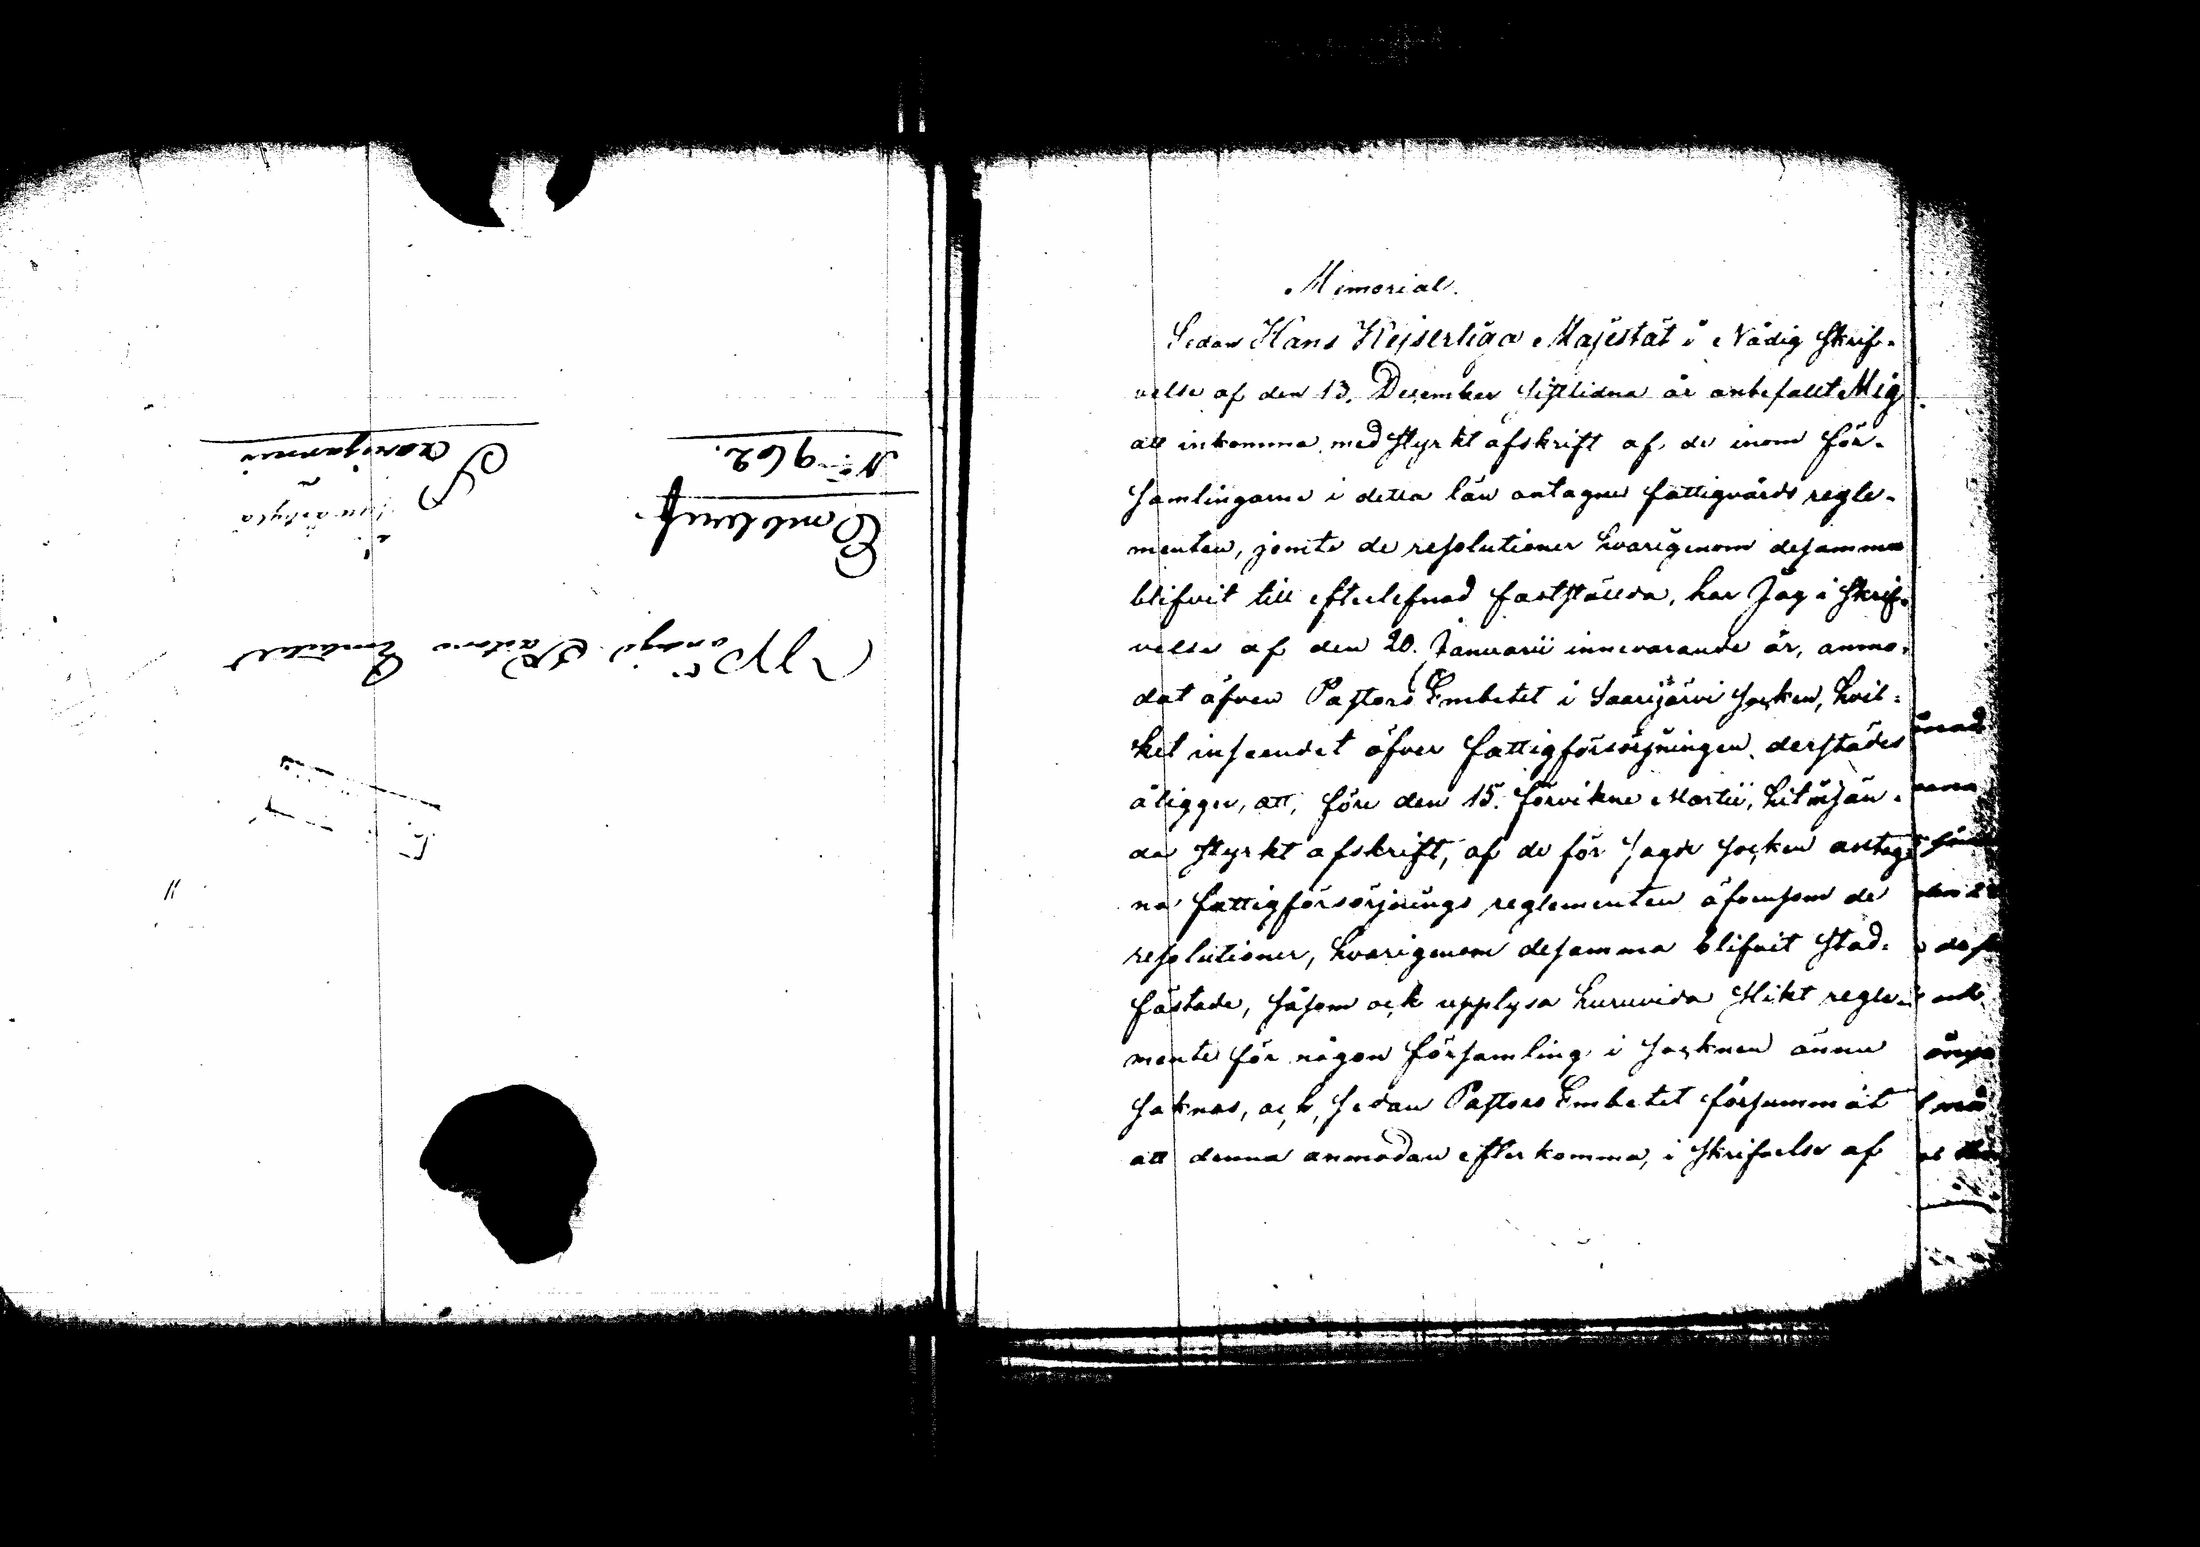 N:o 962.
Embtssk.
Saarijärvi
Pastors Embetet
Memorial.
Sedan Hans Kejserliga Majestät i Nådig Skrif-
velse af den 13. December sistlidna år anbefallt Mig
att inkomma med styrkt afskrift af de inom För-
samlingarne i detta län antagne fattigvårds regle-
menten, jemte de resolutioner hvarigenom desamma
blifvit till efterlefnad fastställda, har Jag i skrif-
velse af den 20. Januarii innevarande år, anmo-
dat äfven Pastors Embetet i Saarijärvi Socken, hvil-
ket inseendet öfver fattigförsörjningen derstädes
åligger, att, före den 15. förvikne Martii, hit insän-
da styrkt afskrift, af de för sagde Socken antag-
na fattigförsörjnings reglementen äfvensom de
resolutioner, hvarigenom desamma blifvit stad-
fästade, såsom ock upplysa huruvida slikt regle-
mente för någon församling i Socknen ännu
saknas, och, sedan Pastors Embetet försummat
att denna anmodan efterkomma, i skrifvelse af